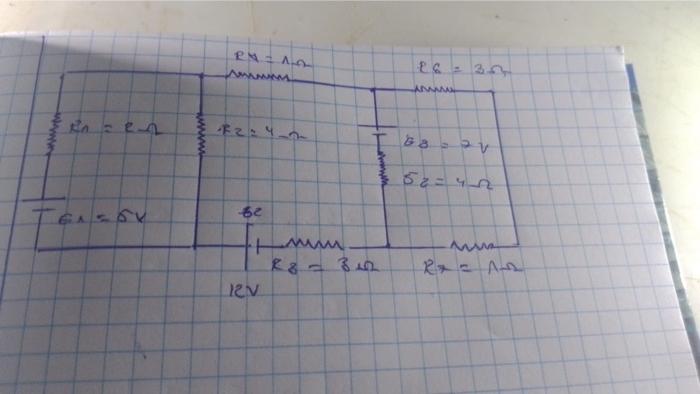 R4 = 1Ω
R6 = 3Ω
R1 = 2Ω
R2 = 4Ω
E3 = 7V
R5 = 4Ω
E1 = 5V
E2
R3 = 3Ω
R7 = 1Ω
12V